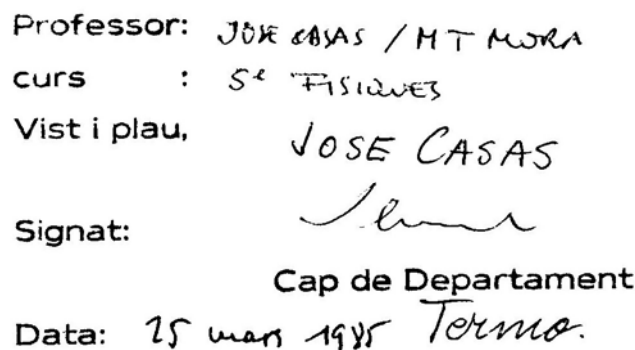 Professor: JOSE CASAS / MT MORA
curs : 5è FISIQUES
Vist i plau,
JOSE CASAS
Signat:
Cap de Departament
Data: 25 març 1985 Termo.